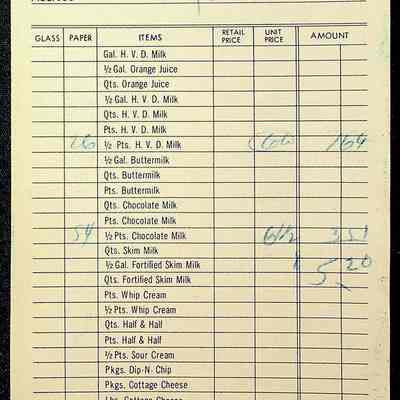 GLASS PAPER ITEMS RETAIL PRICE UNIT PRICE AMOUNT
Gal. H. V. D. Milk
½ Gal. Orange Juice
Qts. Orange Juice
½ Gal. H. V. D. Milk
Qts. H. V. D. Milk
Pts. H. V. D. Milk
26 ½ Pts. H. V. D. Milk 169
½ Gal. Buttermilk
Qts. Buttermilk
Pts. Buttermilk
Qts. Chocolate Milk
Pts. Chocolate Milk
54 ½ Pts. Chocolate Milk 6½ 351
Qts. Skim Milk
½ Gal. Fortified Skim Milk 5.20
Qts. Fortified Skim Milk
Pts. Whip Cream
½ Pts. Whip Cream
Qts. Half & Half
Pts. Half & Half
½ Pts. Sour Cream
Pkgs. Dip-N-Chip
Pkgs. Cottage Cheese
Lbs. Cottage Cheese